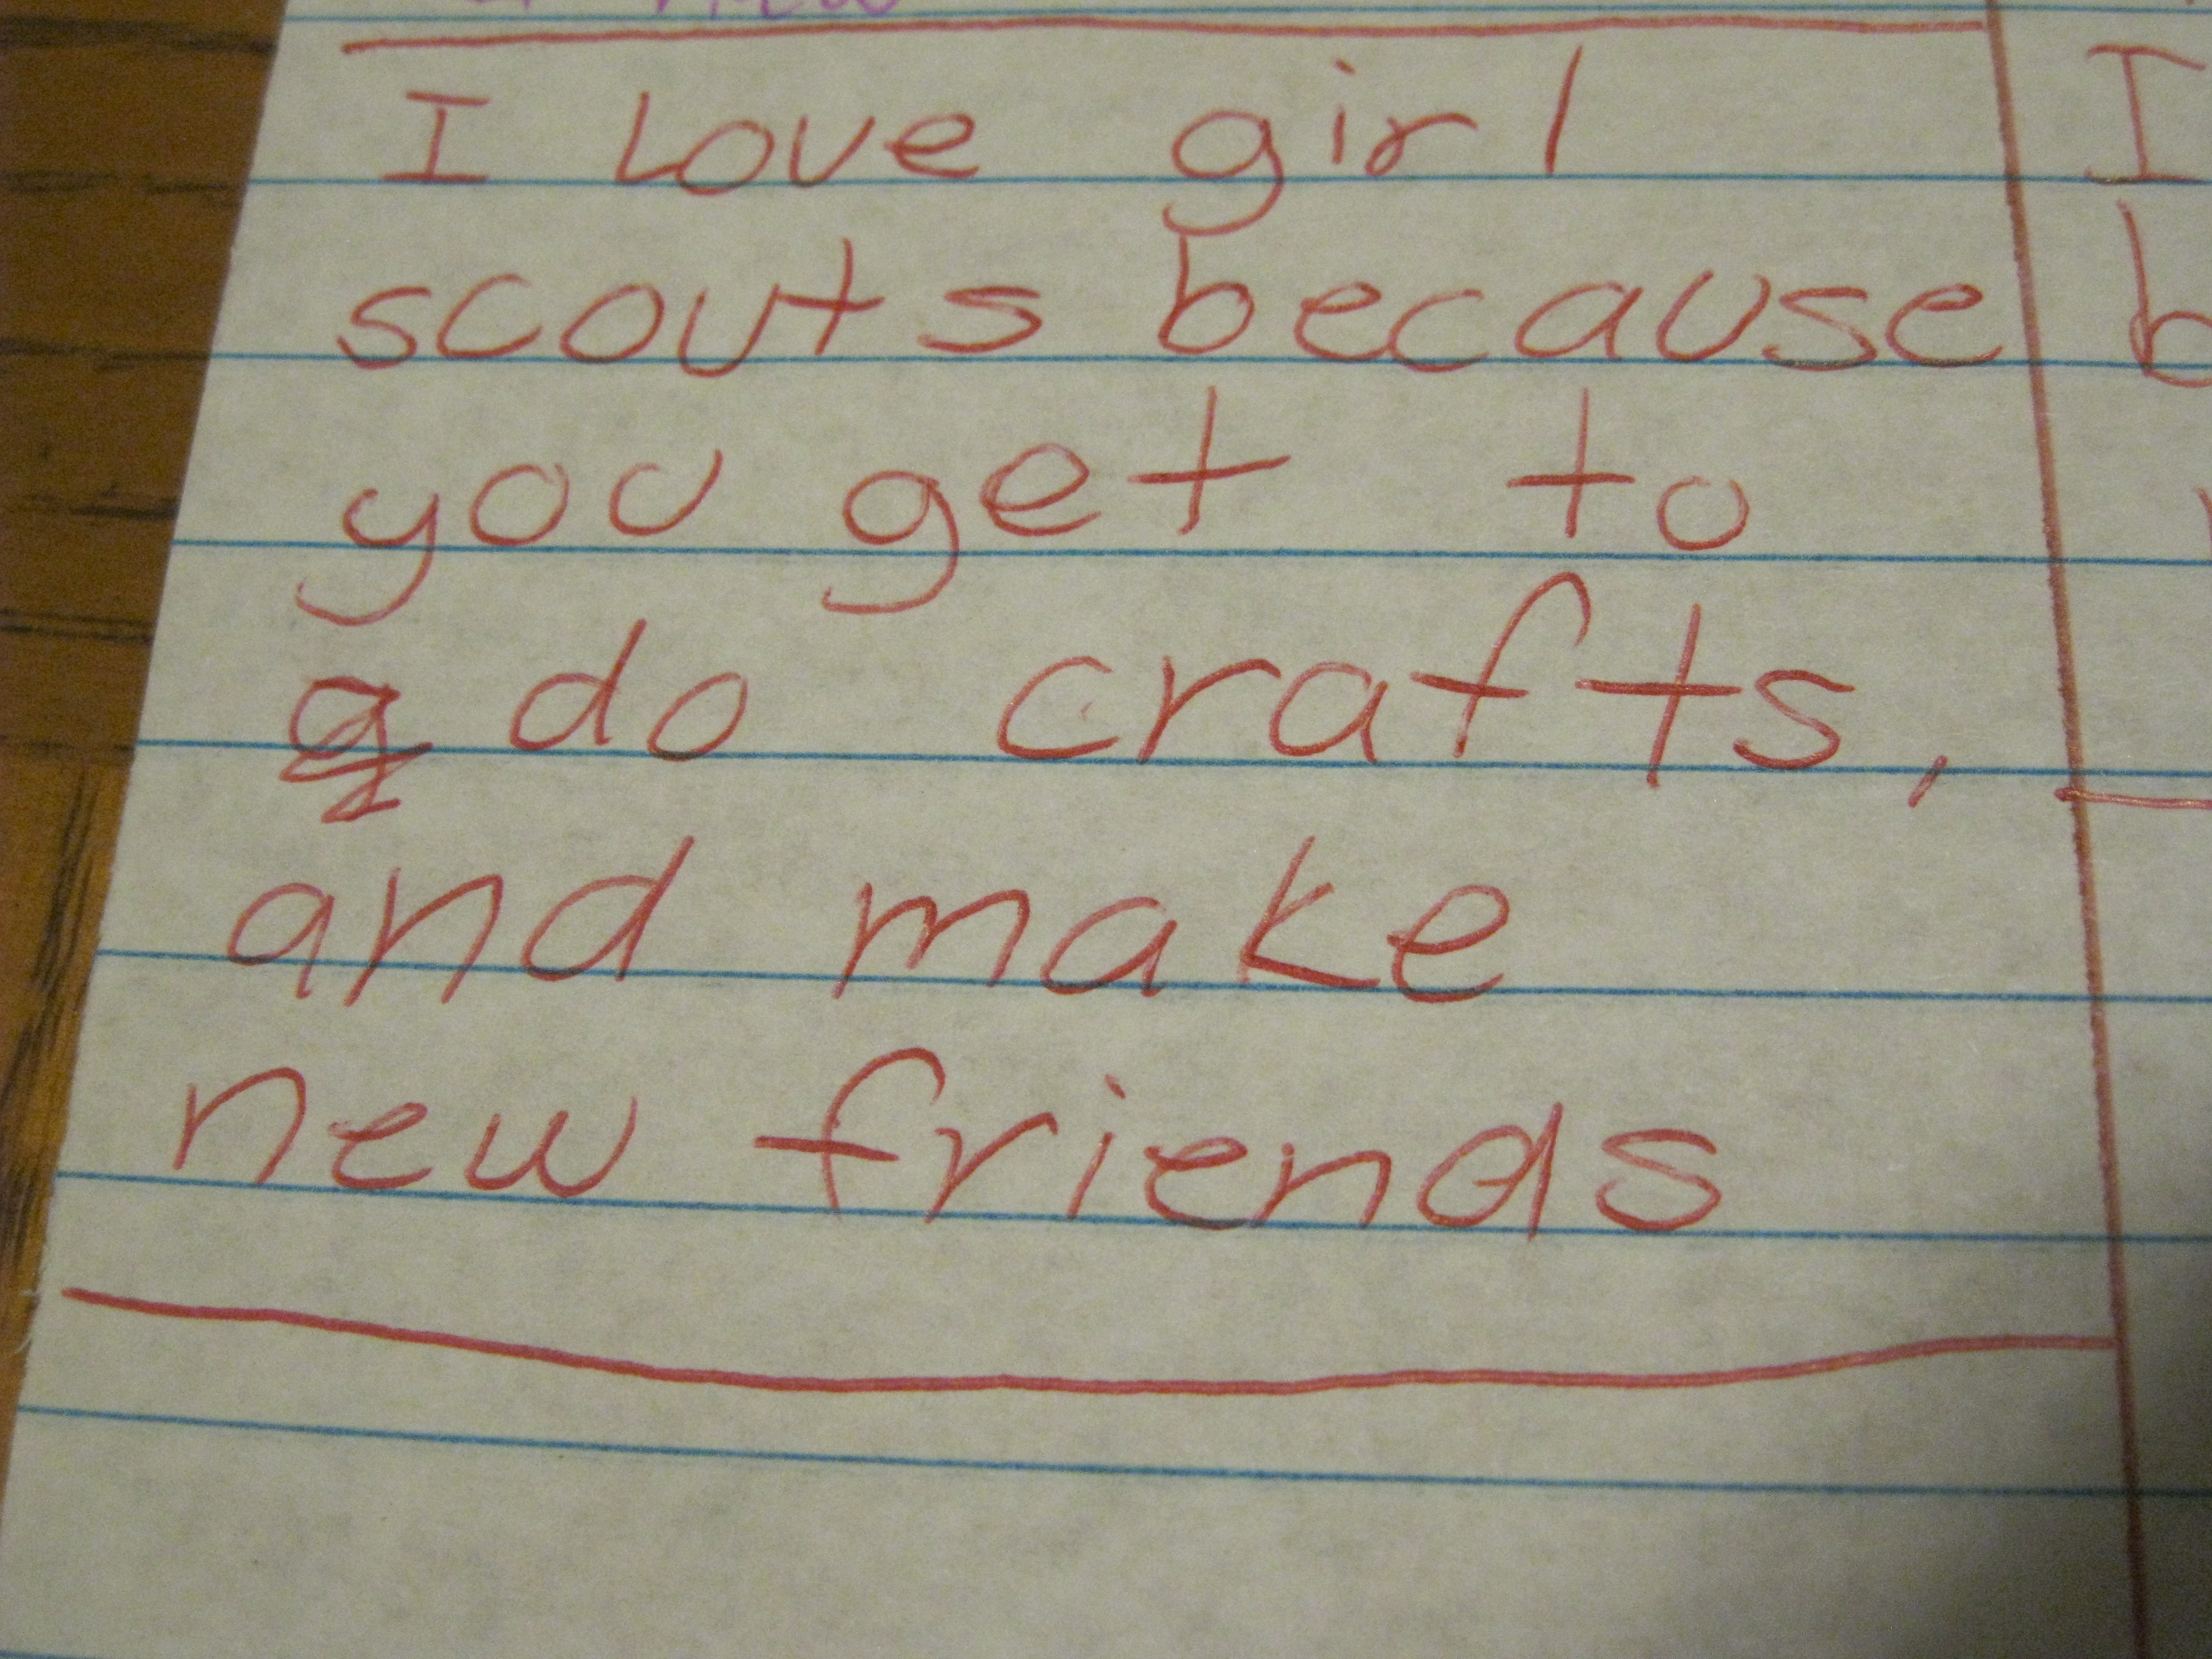 I Love girl
scouts because
you get to
do crafts,
and make
new friends